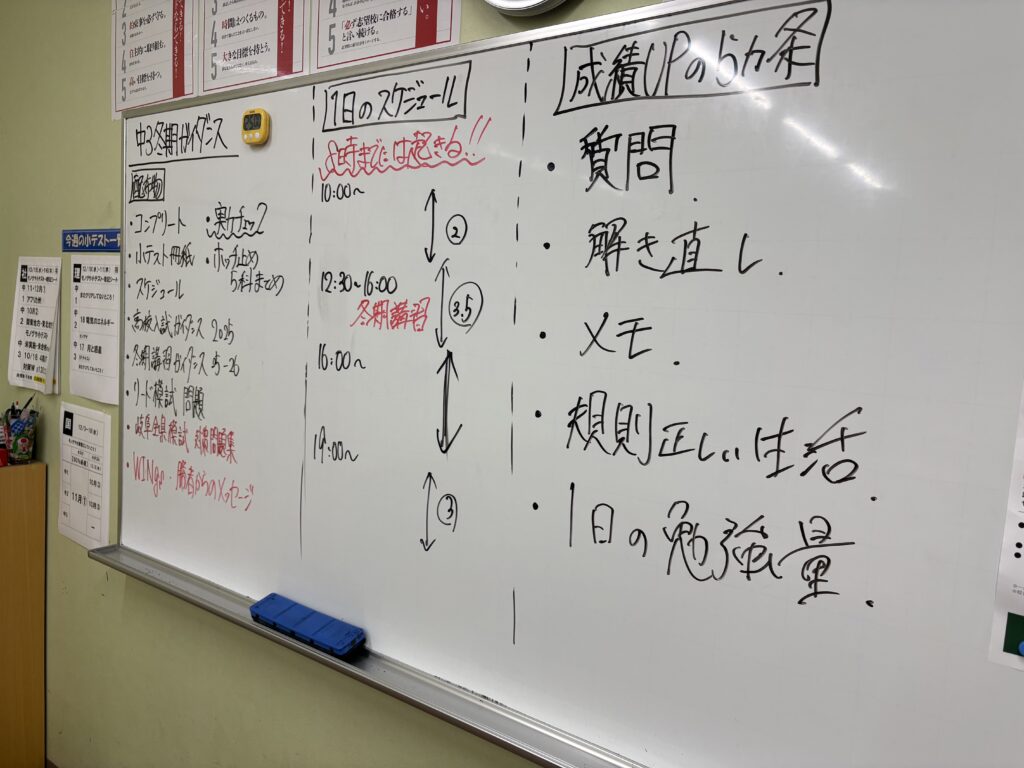 時間はつくるもの。
大きな目標を持とう。
「必ず志望校に合格する」
と言い続ける。
中3冬期ガイダンス
配布物
・コンプリート
・小テスト冊紙
・スケジュール
・高校入試ガイダンス 2025
・冬期講習ガイダンス 25-26
・リード模試 問題
・岐阜全県模試 対策問題集
・WINgs・勝者からのメッセージ
・実力チェック2
・ホッチ止め
5科まとめ
1日のスケジュール
8時までには起きる!!
10:00~
②
12:30~16:00
冬期講習
3.5
16:00~
19:00~
③
成績UPの5カ条
・質問.
・解き直し.
・メモ.
・規則正しい生活.
・1日の勉強量.
今週の小テスト一